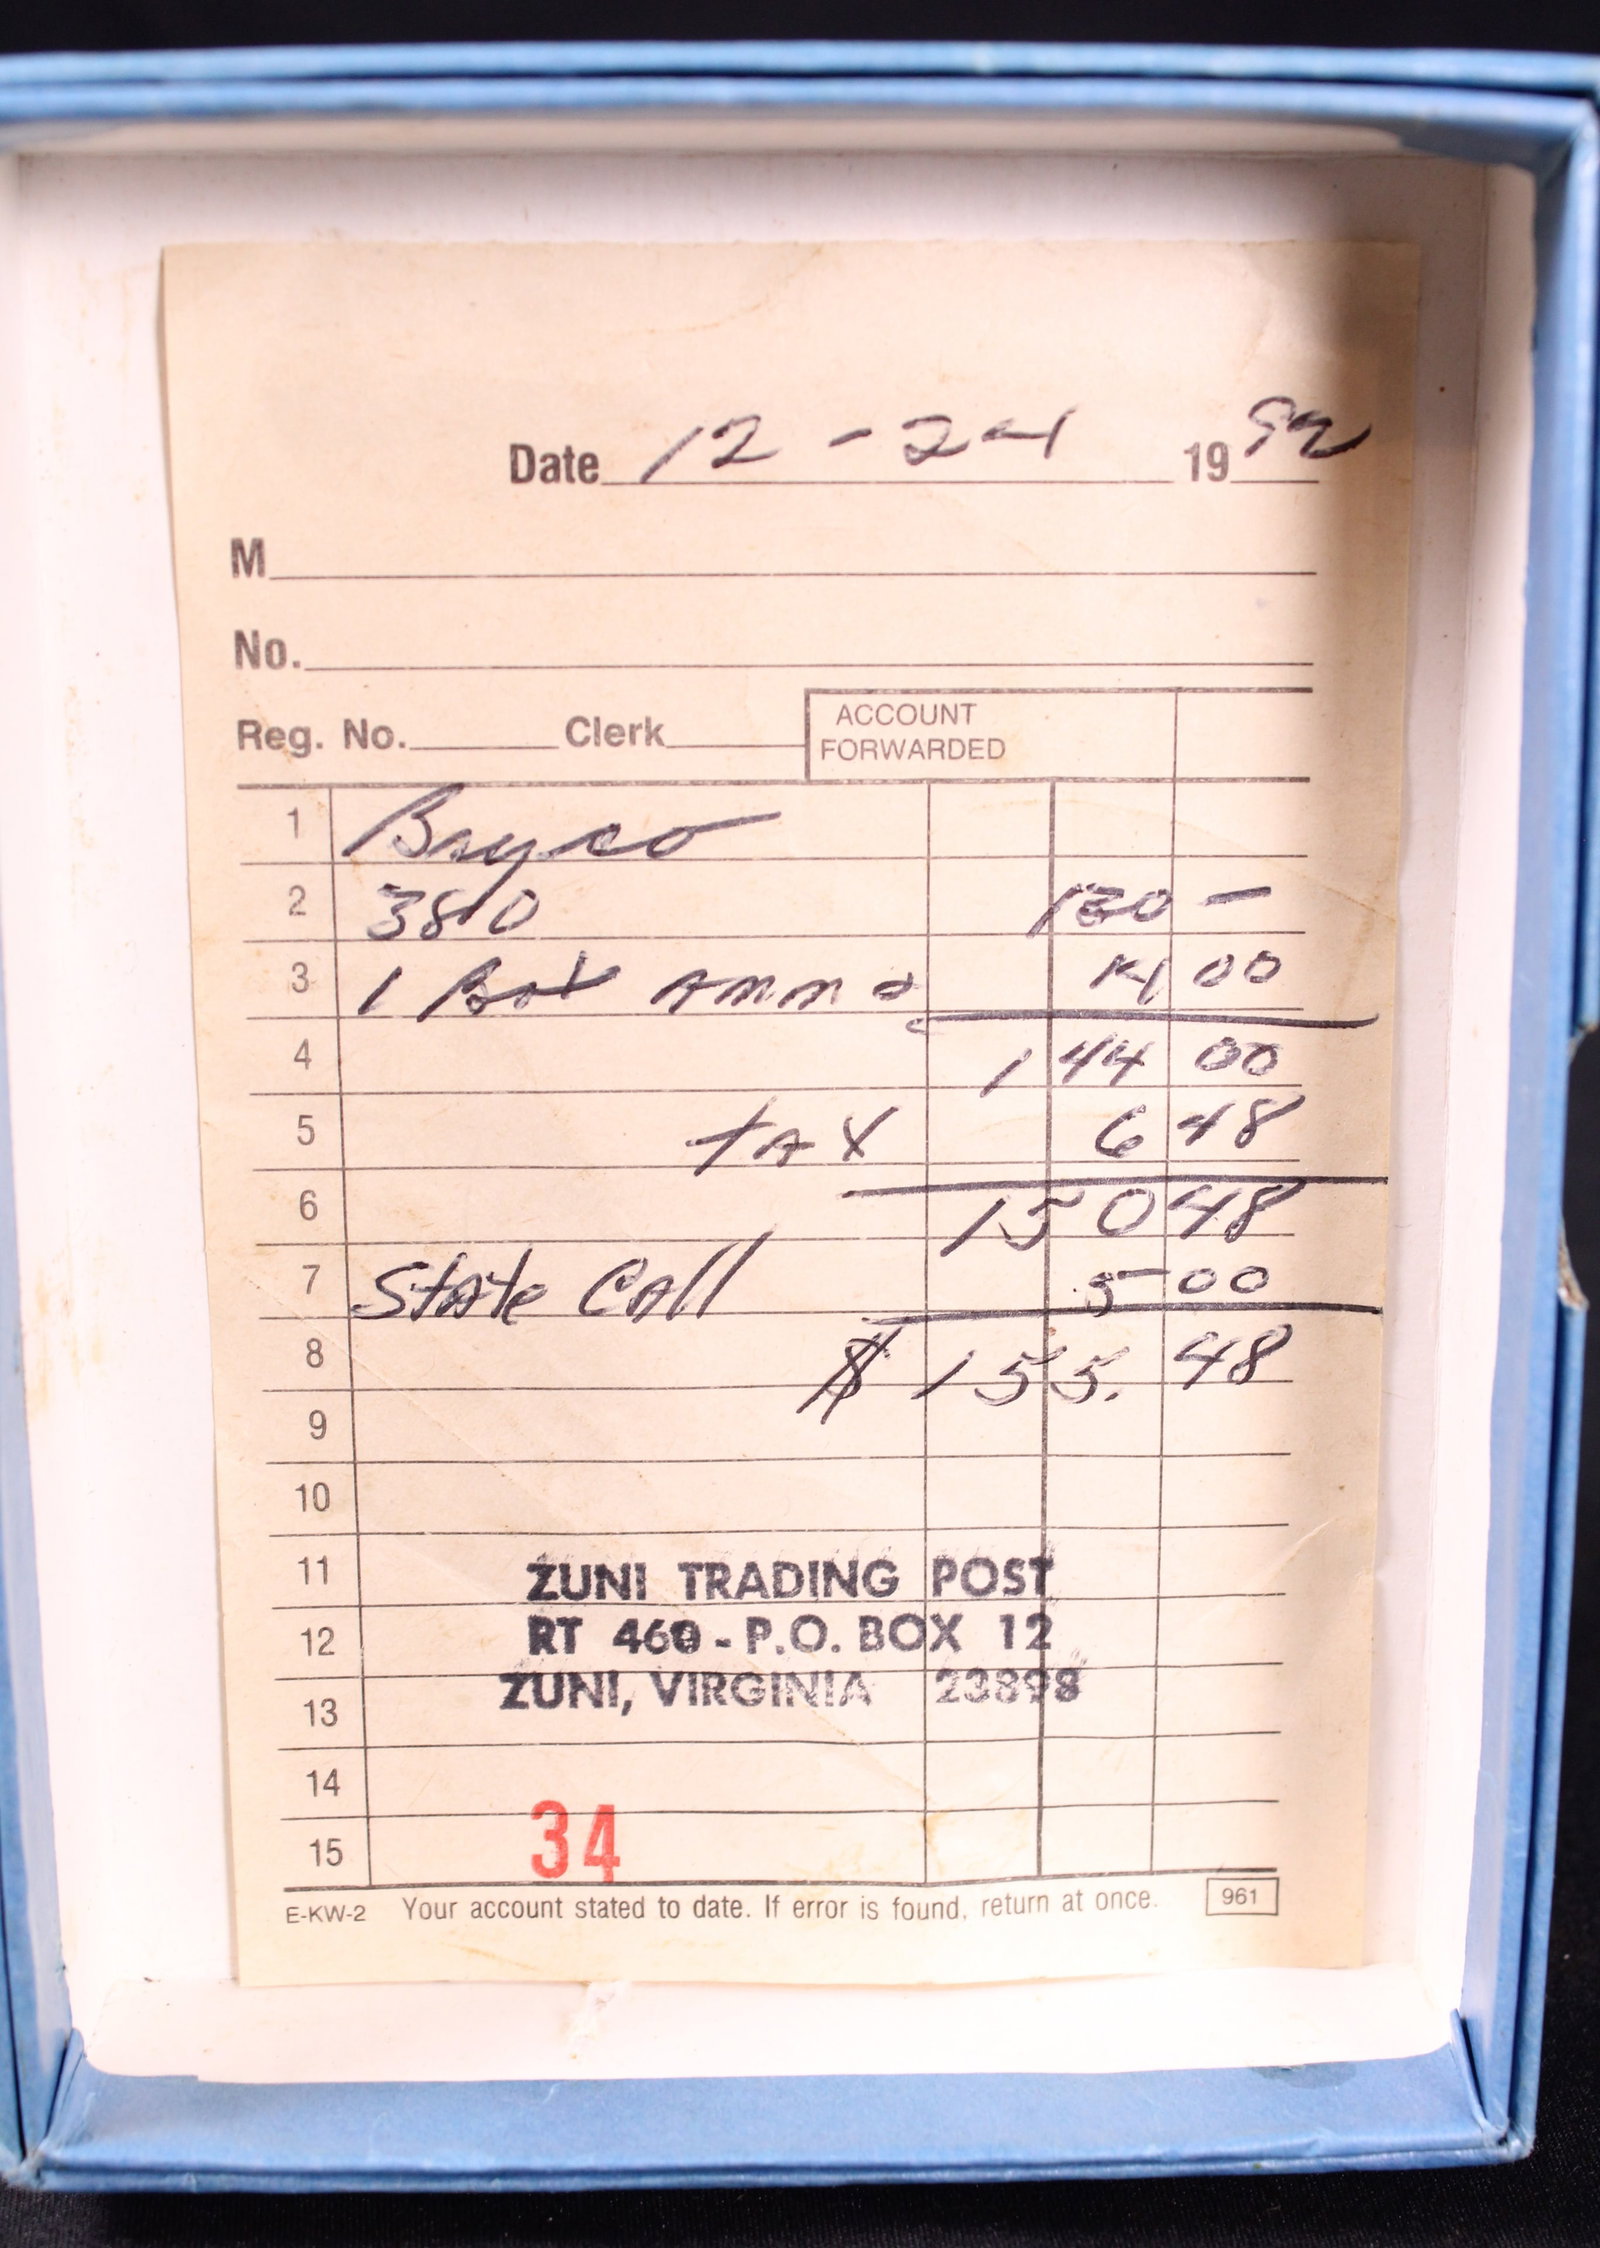 Date 12-24 19 92
M
No.
Reg. No. Clerk ACCOUNT FORWARDED
1 Bryco
2 380 130 -
3 1 Box Ammo 14 00
4 144 00
5 tax 6 48
6 150 48
7 State Call 5 00
8 $ 155. 48
9
10
11 ZUNI TRADING POST
12 RT 460 - P.O. BOX 12
13 ZUNI, VIRGINIA 23898
14
15 34
E-KW-2 Your account stated to date. If error is found, return at once. 961